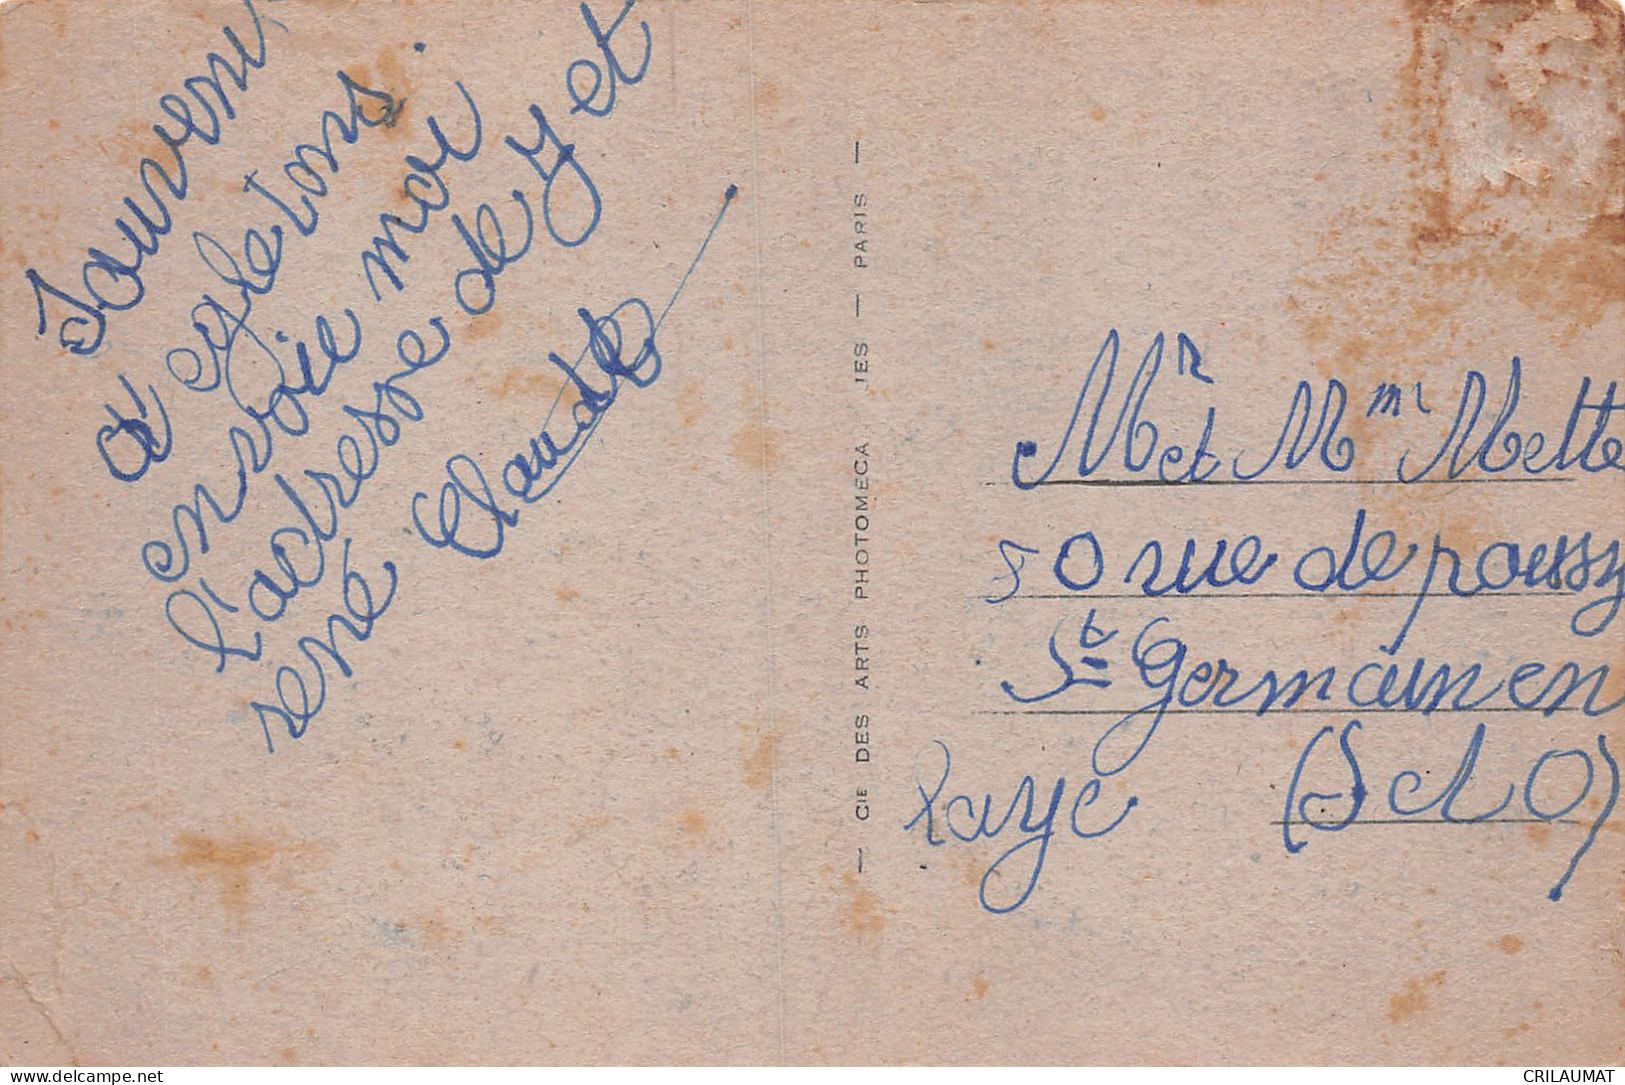 Souvenir
d egletons.
envoie moi
l'adresse de y et
rené Claude
— CIE DES ARTS PHOTOMECA JES — PARIS —
Mr et Mme Mette
50 rue de poissy
St Germain en
Laye (S et O)
delcampe.net
CRILAUMAT